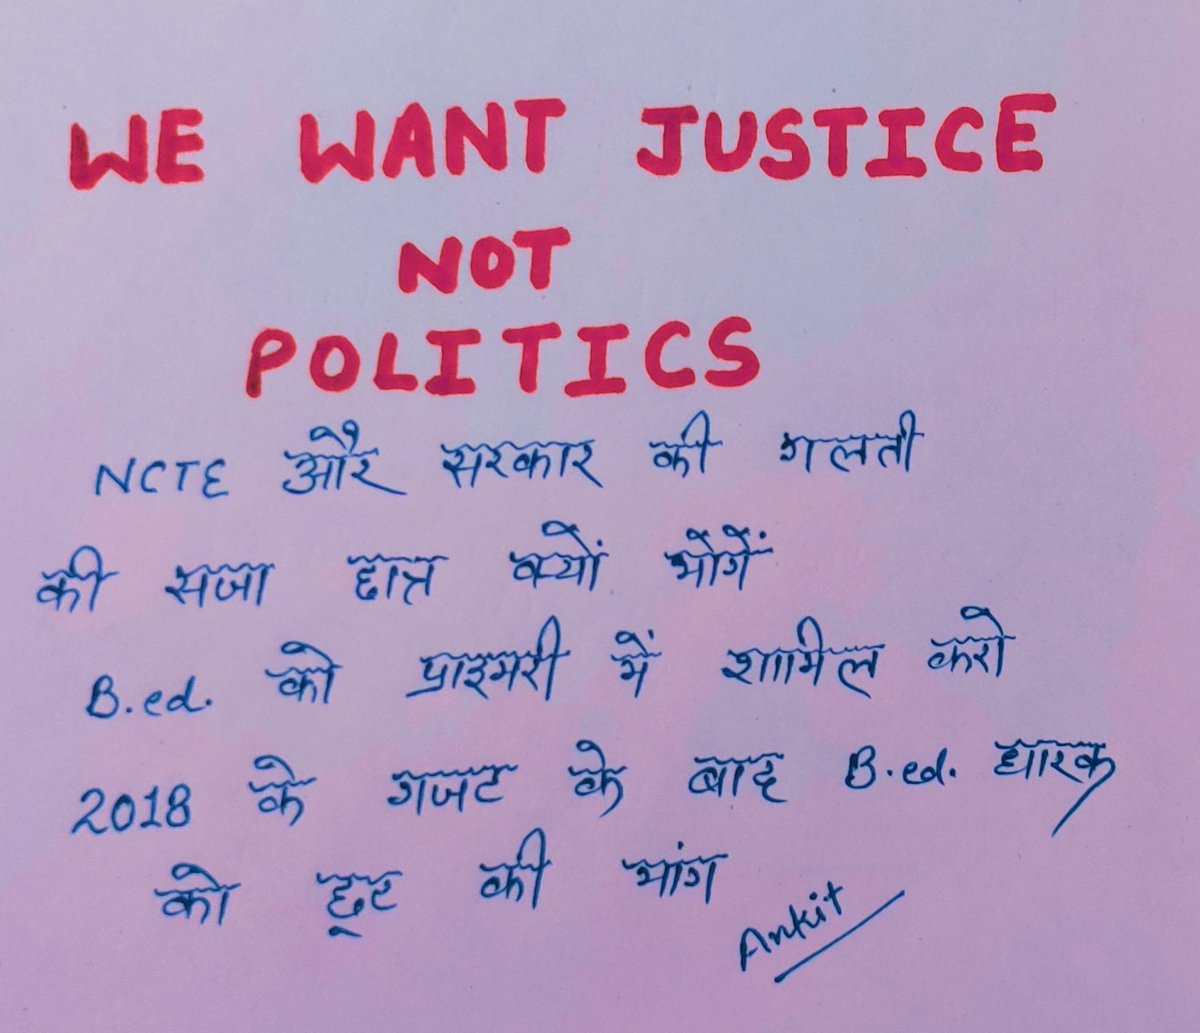 WE WANT JUSTICE
NOT
POLITICS
NCTE और सरकार की गलती
की सजा छात्र क्यों भोगें
B.ed. को प्राइमरी में शामिल करो
2018 के गजट के बाद B.ed. धारक
को छूट की मांग
Ankit